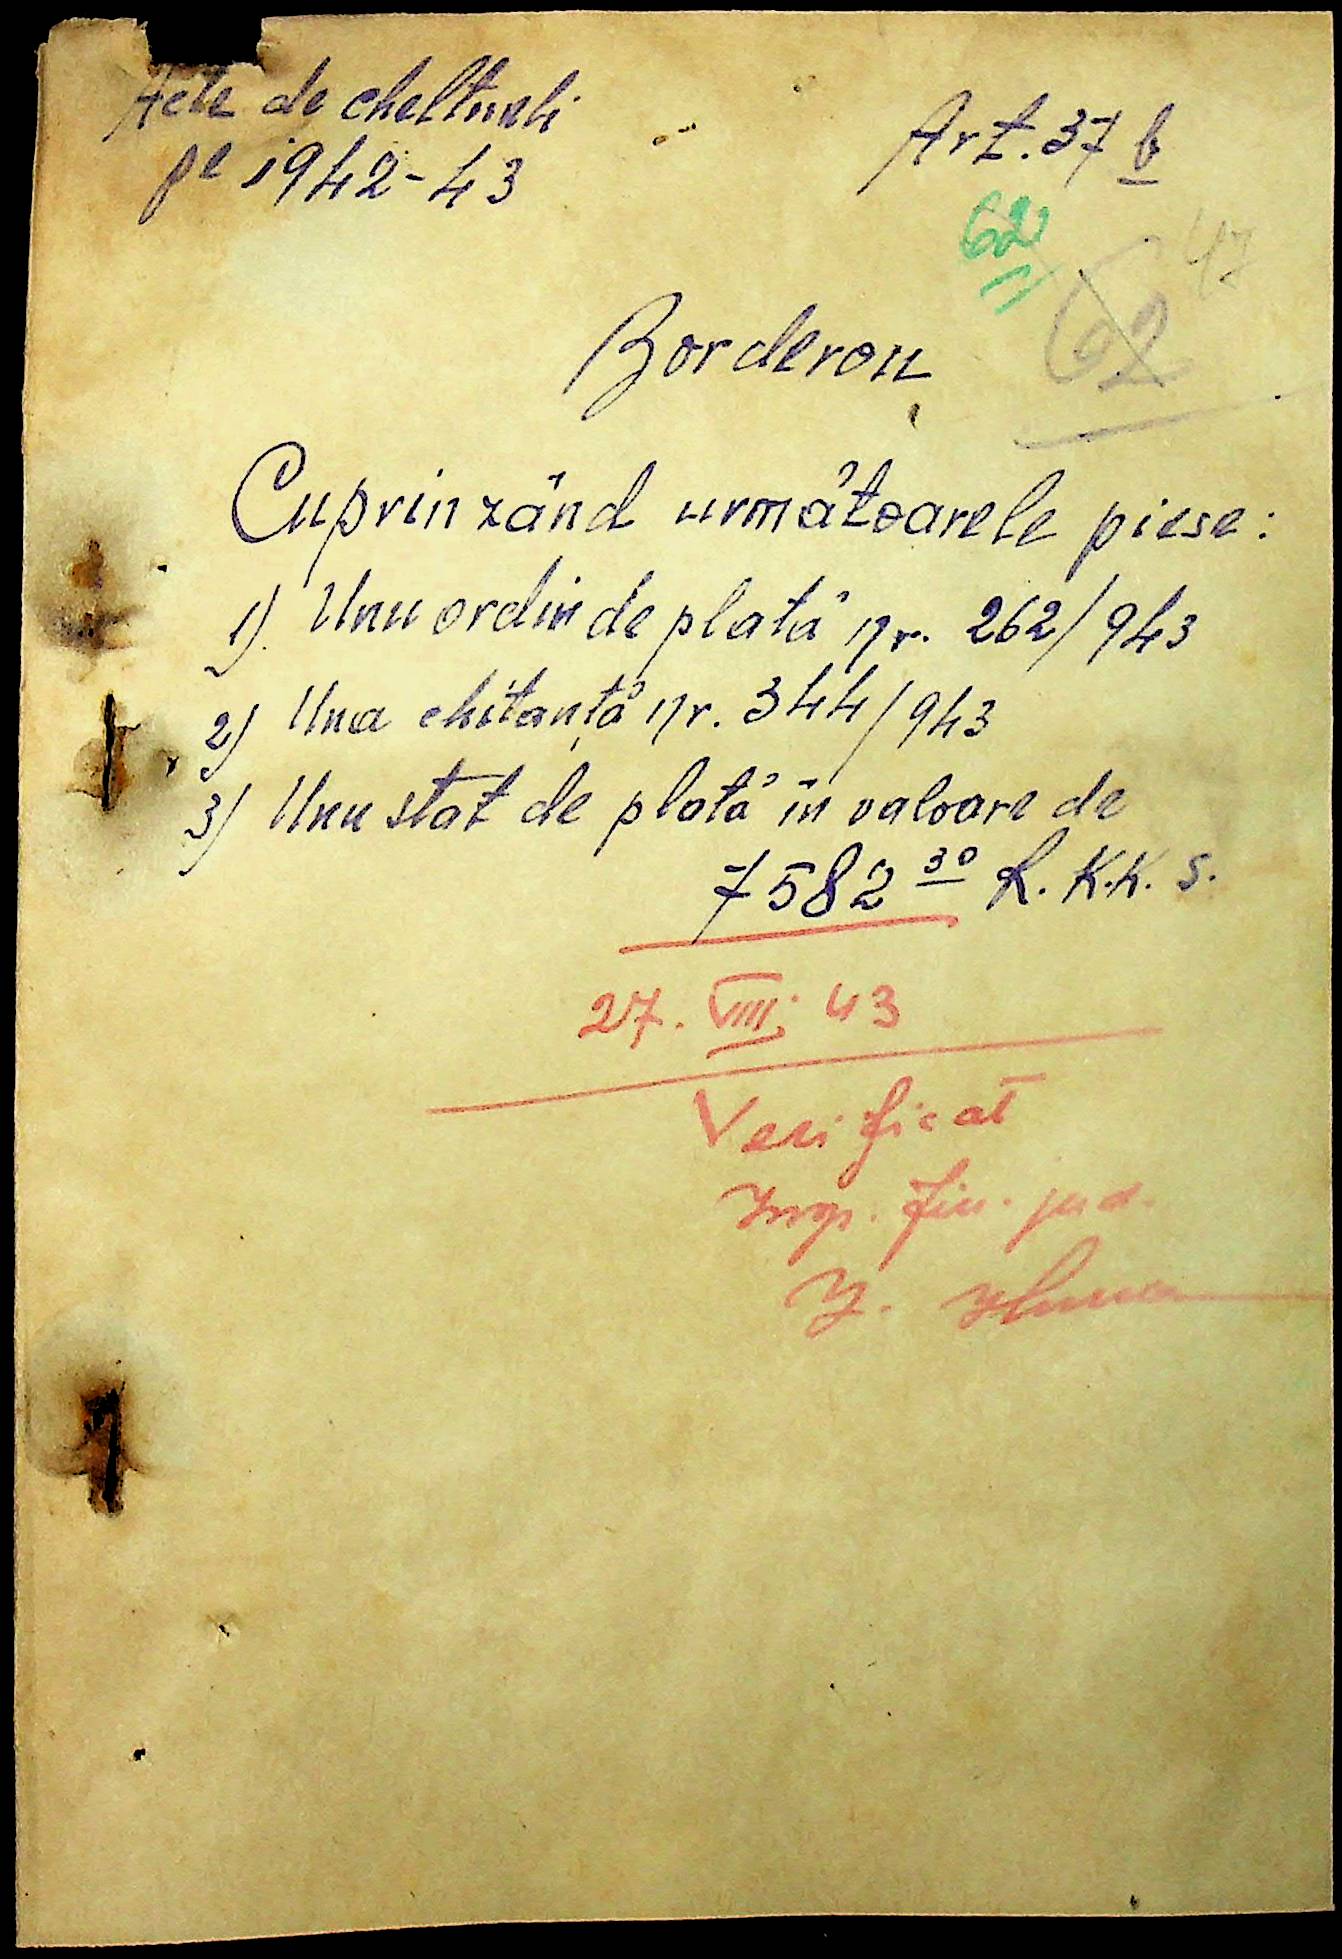 Acte de cheltueli
pe 1942-43
Art. 37 b
62
47
62
Borderou
Cuprinzând următoarele piese:
1) Unu ordin de plată nr. 262/943
2) Una chitanță nr. 344/943
3) Unu stat de plată în valoare de
7582 30 R.K.K.S.
27. VIII. 43
Verificat
fin. jud.